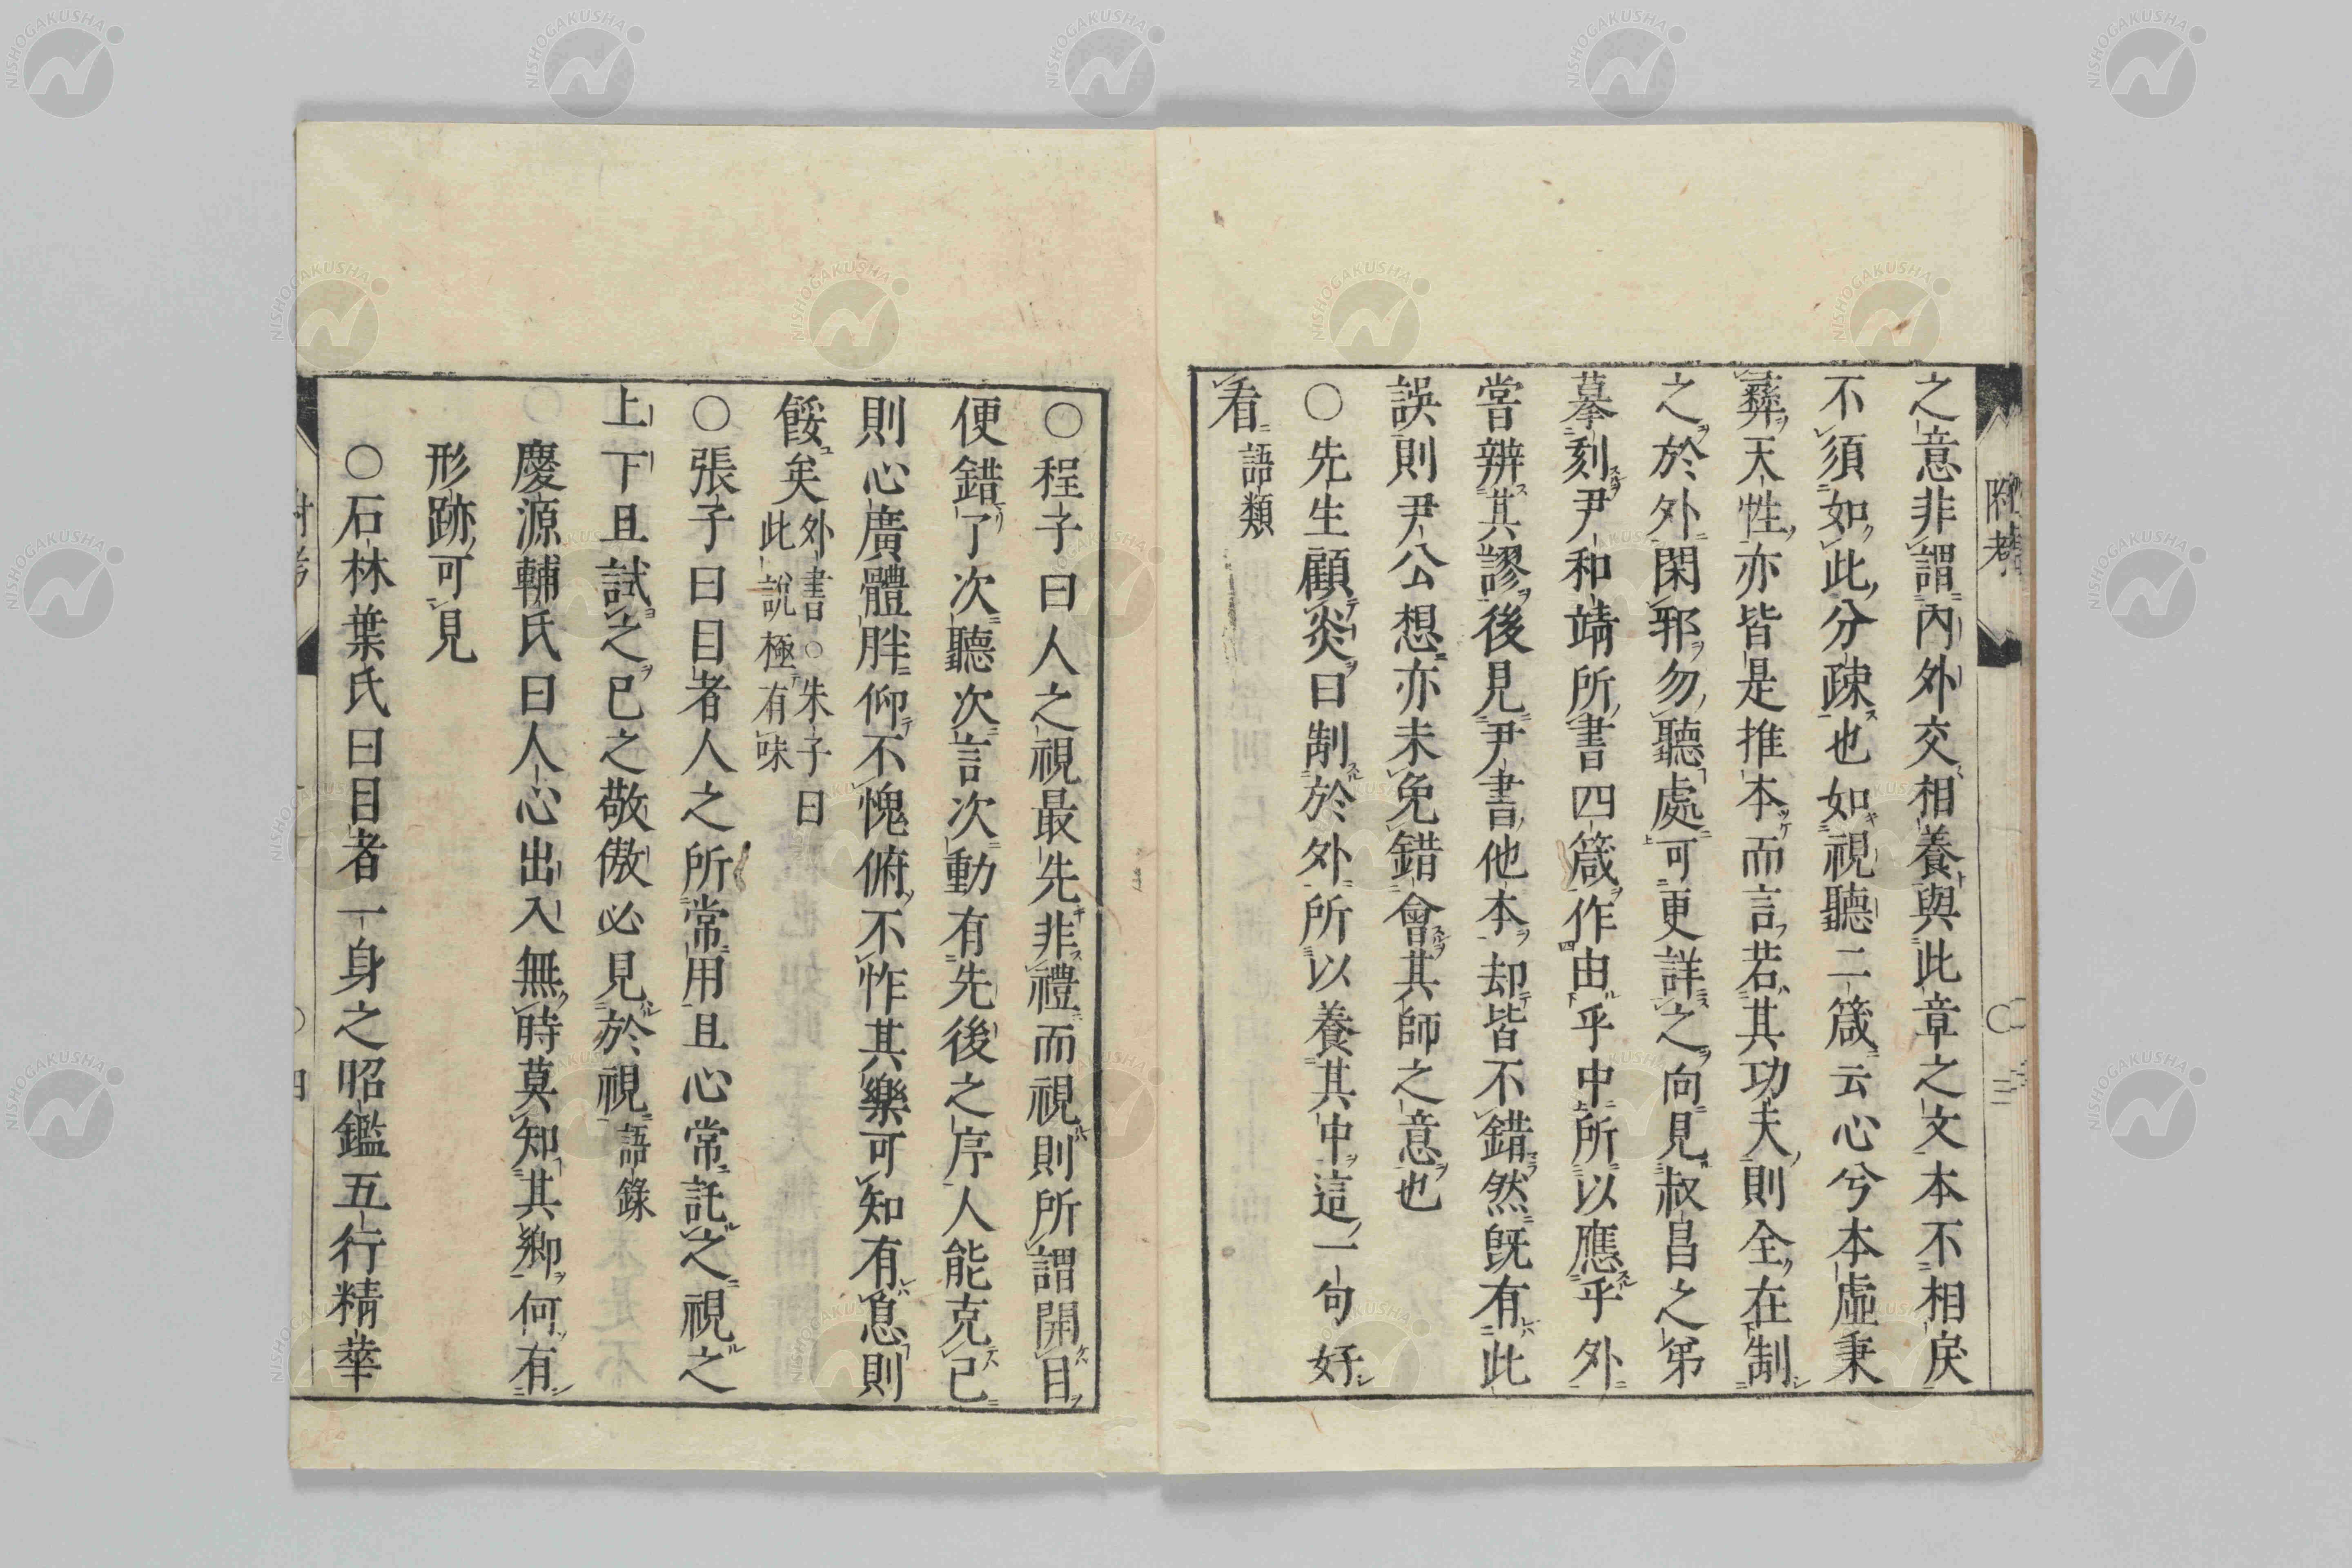 之意非謂内外交相養與此章之文本不相戾
不須如此分疎也如視聽二箴云心兮本虛秉
彝天性亦皆是推本而言若其功夫則全在制
之於外閑邪勿聽處可更詳之向見叔昌之弟
摹刻尹和靖所書四箴作由乎中所以應乎外
嘗辨其謬後見尹書他本却皆不錯然既有此
誤則尹公想亦未免錯會其師之意也
○先生顧炎曰制於外所以養其中這一句好
看語類
附考
三
○程子曰人之視最先非禮而視則所謂開目
便錯了次聽次言次動有先後之序人能克已
則心廣體胖仰不愧俯不怍其樂可知有息則
餒矣外書○朱子曰
此說極有味
○張子曰目者人之所常用且心常託之視之
上下且試之已之敬傲必見於視語錄
慶源輔氏曰人心出入無時莫知其鄉何有
形跡可見
○石林葉氏曰目者一身之昭鑑五行精華
四
NISHOGAKUSHA